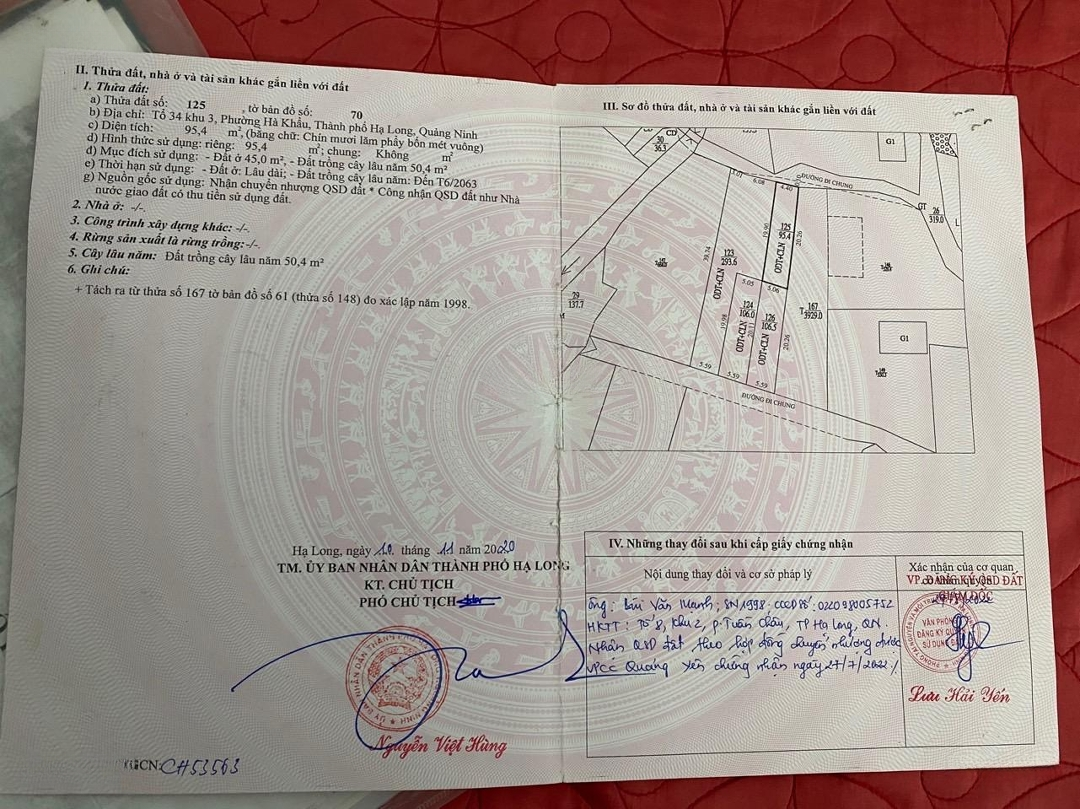 II. Thửa đất, nhà ở và tài sản khác gắn liền với đất
1. Thửa đất:
a) Thửa đất số: 125 , tờ bản đồ số: 70
b) Địa chỉ: Tổ 34 khu 3, Phường Hà Khẩu, Thành phố Hạ Long, Quảng Ninh
c) Diện tích: 95,4 m², (bằng chữ: Chín mươi lăm phẩy bốn mét vuông)
d) Hình thức sử dụng: riêng: 95,4 m²; chung: Không m²
đ) Mục đích sử dụng: - Đất ở 45,0 m², - Đất trồng cây lâu năm 50,4 m²
e) Thời hạn sử dụng: - Đất ở: Lâu dài; - Đất trồng cây lâu năm: Đến T6/2063
g) Nguồn gốc sử dụng: Nhận chuyển nhượng QSD đất * Công nhận QSD đất như Nhà
nước giao đất có thu tiền sử dụng đất.
2. Nhà ở: -/-.
3. Công trình xây dựng khác: -/-.
4. Rừng sản xuất là rừng trồng:-/-.
5. Cây lâu năm: Đất trồng cây lâu năm 50,4 m²
6. Ghi chú:
+ Tách ra từ thửa số 167 tờ bản đồ số 61 (thửa số 148) do xác lập năm 1998.
Hạ Long, ngày 10 tháng 11 năm 2020
TM. ỦY BAN NHÂN DÂN THÀNH PHỐ HẠ LONG
KT. CHỦ TỊCH
PHÓ CHỦ TỊCH
Nguyễn Việt Hùng
CH53563
III. Sơ đồ thửa đất, nhà ở và tài sản khác gắn liền với đất
CD
30
36.3
G1
ĐƯỜNG ĐI CHUNG
GT
26
319.0
L
6.08
4.40
19.90
125
95.4
ODT+CLN
20.26
39.24
123
293.6
ODT+CLN
5.05
5.06
124
106.0
ODT+CLN
19.98
20.11
126
106.5
ODT+CLN
20.26
T 167
3929.0
29
137.7
G1
5.59
5.59
5.59
ĐƯỜNG ĐI CHUNG
IV. Những thay đổi sau khi cấp giấy chứng nhận
Nội dung thay đổi và cơ sở pháp lý
Xác nhận của cơ quan
có thẩm quyền
VP. ĐĂNG KÝ QSD ĐẤT
GIÁM ĐỐC
Ông: Bùi Văn Mạnh; SN1998. CCCD số: 022098005752
HKTT: Tổ 8, khu 2, P. Tuần Châu, TP Hạ Long, QN.
Nhận QSD đất theo hợp đồng chuyển nhượng được
VPCC Quảng Yên chứng nhận ngày 27/7/2022./.
VĂN PHÒNG
ĐĂNG KÝ QUYỀN
SỬ DỤNG ĐẤT
Lưu Hải Yến